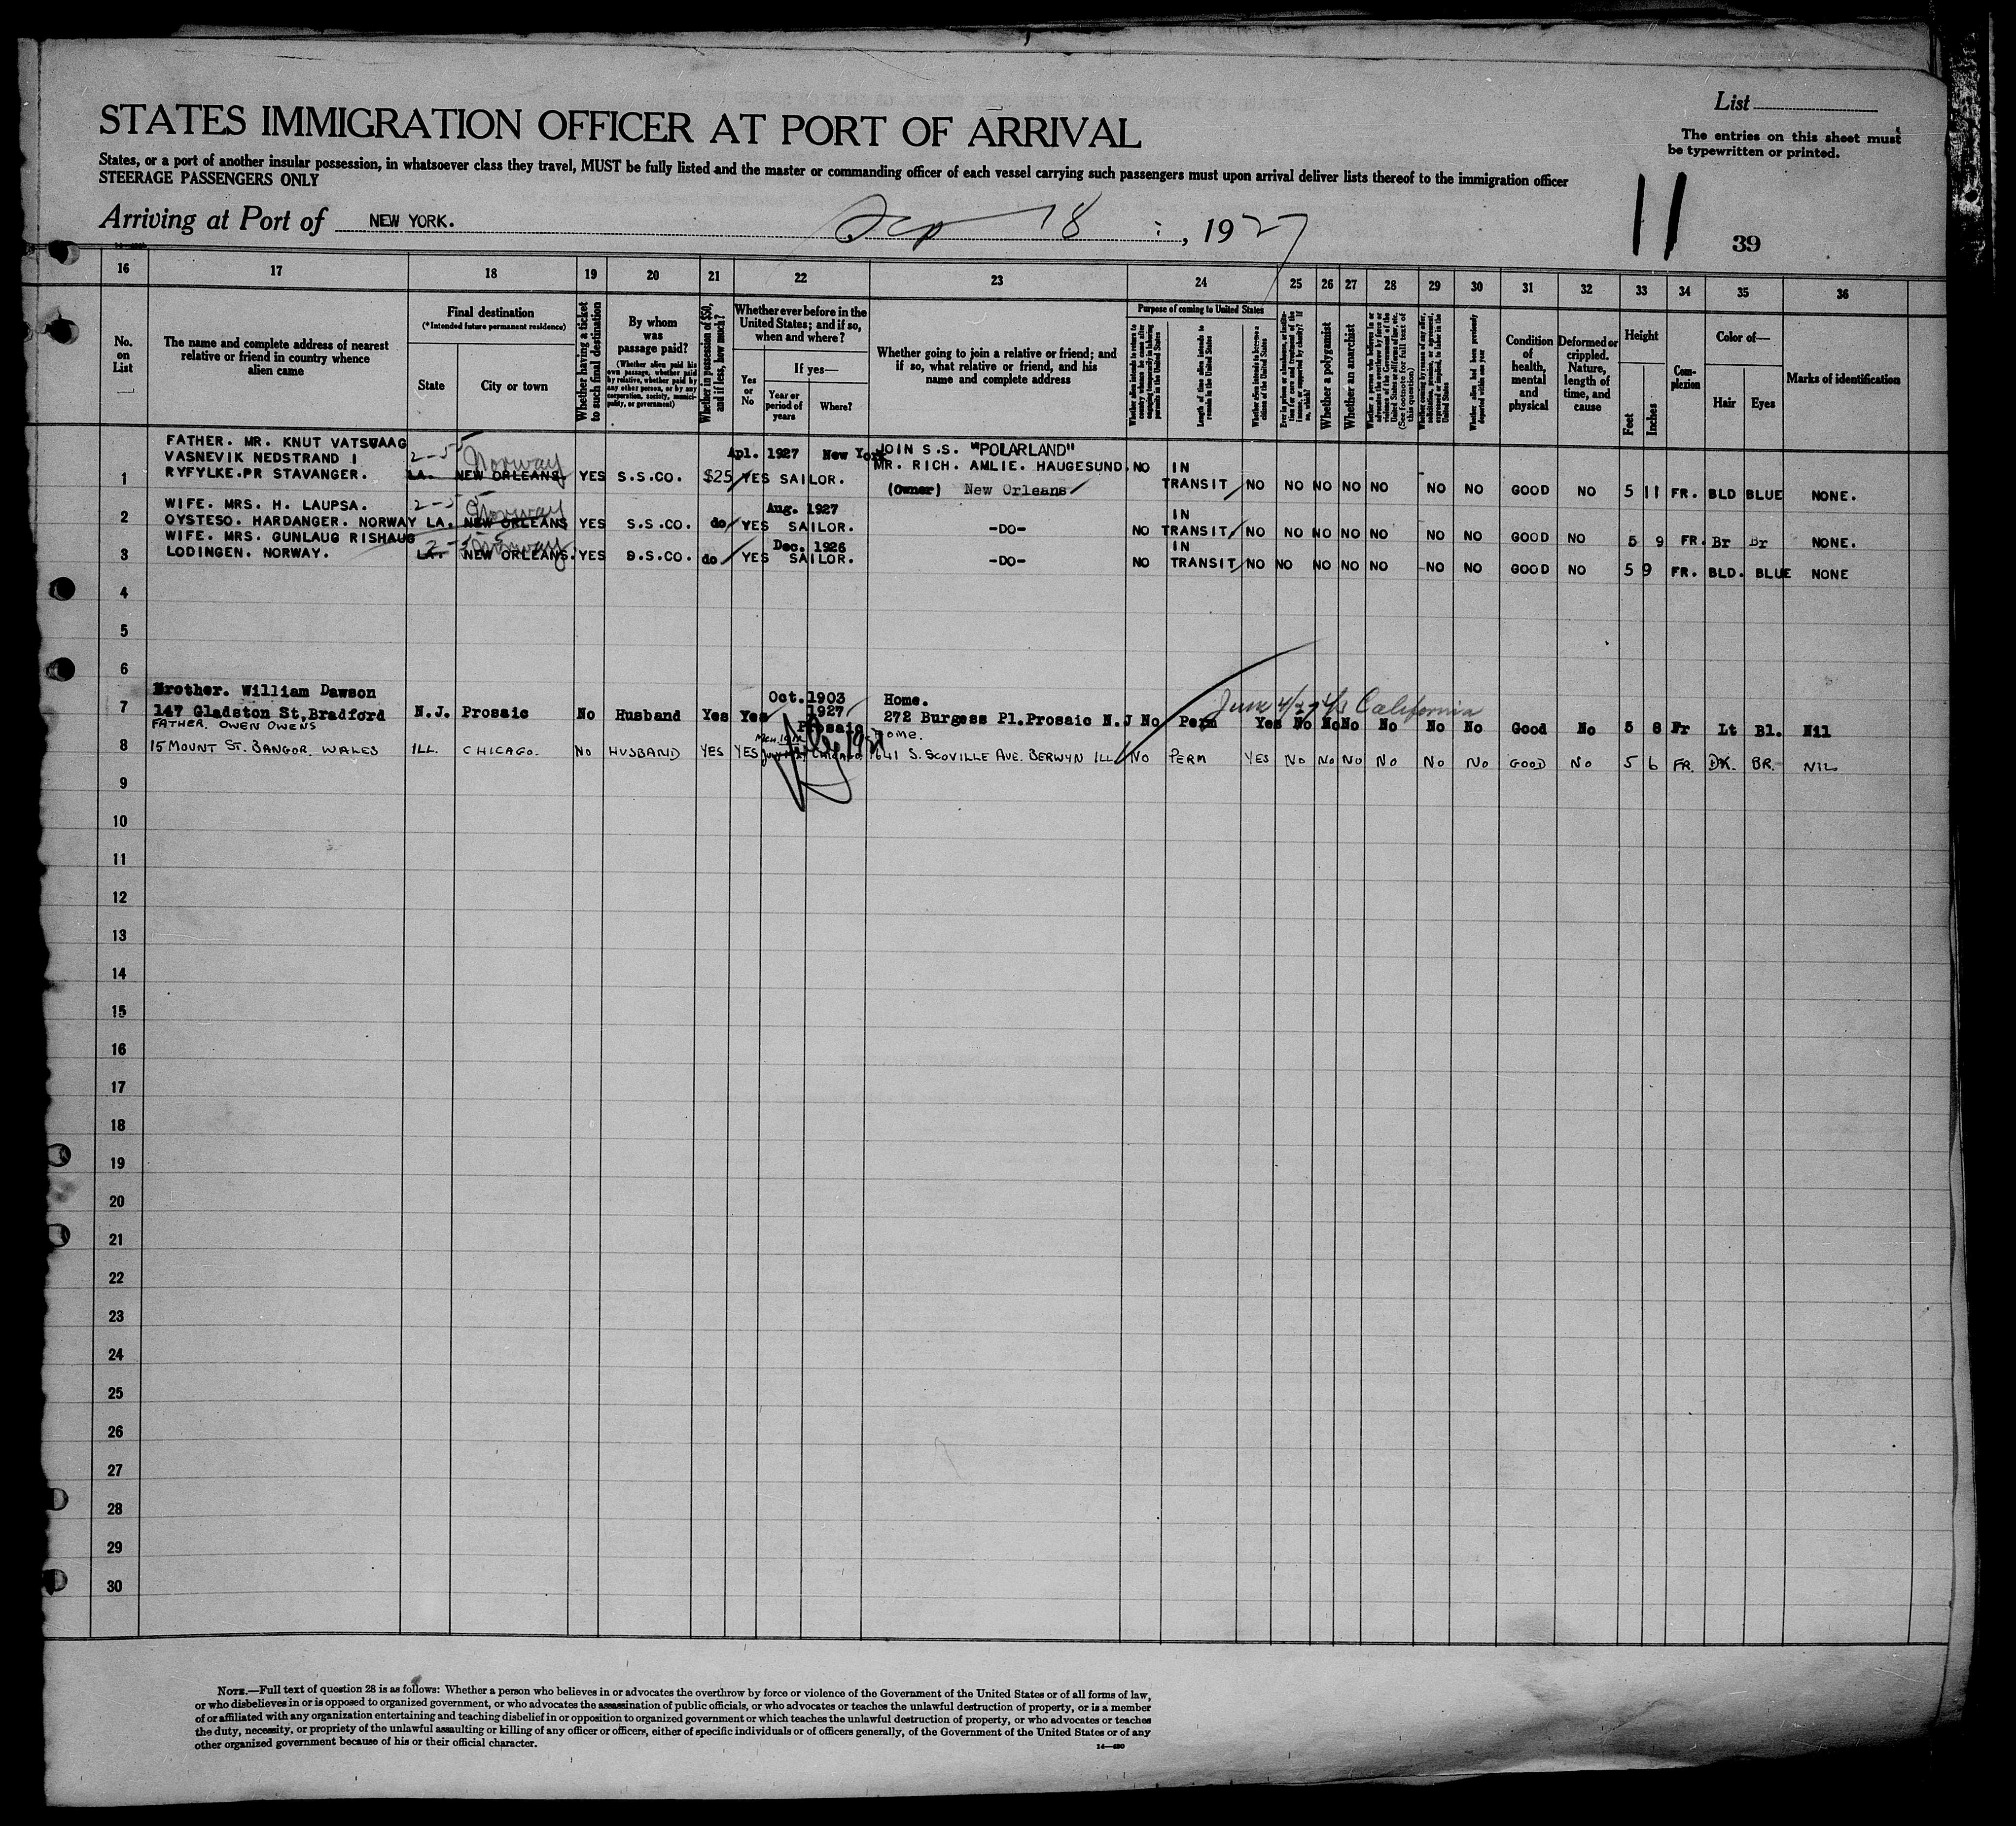 List
The entries on this sheet must
be typewritten or printed.
STATES IMMIGRATION OFFICER AT PORT OF ARRIVAL
States, or a port of another insular possession, in whatsoever class they travel, MUST be fully listed and the master or commanding officer of each vessel carrying such passengers must upon arrival deliver lists thereof to the immigration officer
STEERAGE PASSENGERS ONLY
Arriving at Port of NEW YORK. Sep 18, 1927
11 39
16 17 18 19 20 21 22 23 24 25 26 27 28 29 30 31 32 33 34 35 36
No. on List
The name and complete address of nearest
relative or friend in country whence
alien came
Final destination
(*Intended future permanent residence)
State
City or town
Whether having a ticket
to such final destination
By whom
was
passage paid?
(Whether alien paid his
own passage, whether paid
by relative, whether paid by
any other person, or by any
corporation, society, munici-
pality, or government)
Whether in possession of $50,
and if less, how much?
Whether ever before in the
United States; and if so,
when and where?
Yes or No
If yes—
Year or
period of
years
Where?
Whether going to join a relative or friend; and
if so, what relative or friend, and his
name and complete address
Purpose of coming to United States
Whether alien intends to return to
country whence he came after
engaging temporarily in laboring
pursuits in the United States
Length of time alien intends to
remain in the United States
Whether alien intends to become a
citizen of the United States
Ever in prison or almshouse, or institu-
tion for care and treatment of the
insane, or supported by charity? If
so, which?
Whether a polygamist
Whether an anarchist
Whether a person who believes in or
advocates the overthrow by force or
violence of the Government of the
United States or all forms of law, etc.
(See footnote for full text of
this question)
Whether coming by reason of any offer,
solicitation, promise, or agreement,
expressed or implied, to labor in the
United States
Whether alien had been previously
deported within one year
Condition
of
health,
mental
and
physical
Deformed or
crippled.
Nature,
length of
time, and
cause
Height
Feet
Inches
Com-
plexion
Color of—
Hair
Eyes
Marks of identification
FATHER. MR. KNUT VATSVAAG
VASNEVIK NEDSTRAND I Apl. 1927 New York JOIN S.S. "POLARLAND"
2-55 Norway MR. RICH. AMLIE. HAUGESUND.
1 RYFYLKE.PR STAVANGER. LA. NEW ORLEANS. YES S.S.CO. $25 YES SAILOR. (Owner) New Orleans NO IN TRANSIT NO NO NO NO NO NO NO GOOD NO 5 11 FR. BLD BLUE NONE.
WIFE. MRS. H. LAUPSA. 2-55 Norway Aug. 1927
2 OYSTESO. HARDANGER. NORWAY LA. NEW ORLEANS YES S.S.CO. do YES SAILOR. -DO- NO IN TRANSIT NO NO NO NO NO NO NO GOOD NO 5 9 FR. Br Br NONE.
WIFE. MRS. GUNLAUG RISHAUG 2-55 Norway Dec. 1926
3 LODINGEN. NORWAY. LA. NEW ORLEANS. YES S.S.CO. do YES SAILOR. -DO- NO IN TRANSIT NO NO NO NO NO NO NO GOOD NO 5 9 FR. BLD. BLUE NONE
4
5
6
Brother. William Dawson Oct. 1903 Home.
June 4/27 California
7 147 Gladston St,Bradford N.J. Prosaic No Husband Yes Yes 1927 Prosaic 272 Burgess Pl.Prosaic N.J No Perm Yes No No No No No No Good No 5 8 Fr Lt Bl. Nil
FATHER. OWEN OWENS HOME.
8 15 MOUNT ST. BANGOR. WALES ILL. CHICAGO. NO HUSBAND YES YES CHICAGO 1641 S. SCOVILLE AVE. BERWYN ILL NO PERM YES NO NO NO NO NO NO GOOD NO 5 6 FR. DK. BR. NIL
9
10
11
12
13
14
15
16
17
18
19
20
21
22
23
24
25
26
27
28
29
30
NOTE.—Full text of question 28 is as follows: Whether a person who believes in or advocates the overthrow by force or violence of the Government of the United States or of all forms of law,
or who disbelieves in or is opposed to organized government, or who advocates the assassination of public officials, or who advocates or teaches the unlawful destruction of property, or is a member
of or affiliated with any organization entertaining and teaching disbelief in or opposition to organized government or which teaches the unlawful destruction of property, or who advocates or teaches
the duty, necessity, or propriety of the unlawful assaulting or killing of any officer or officers, either of specific individuals or of officers generally, of the Government of the United States or of any
other organized government because of his or their official character.
14—490